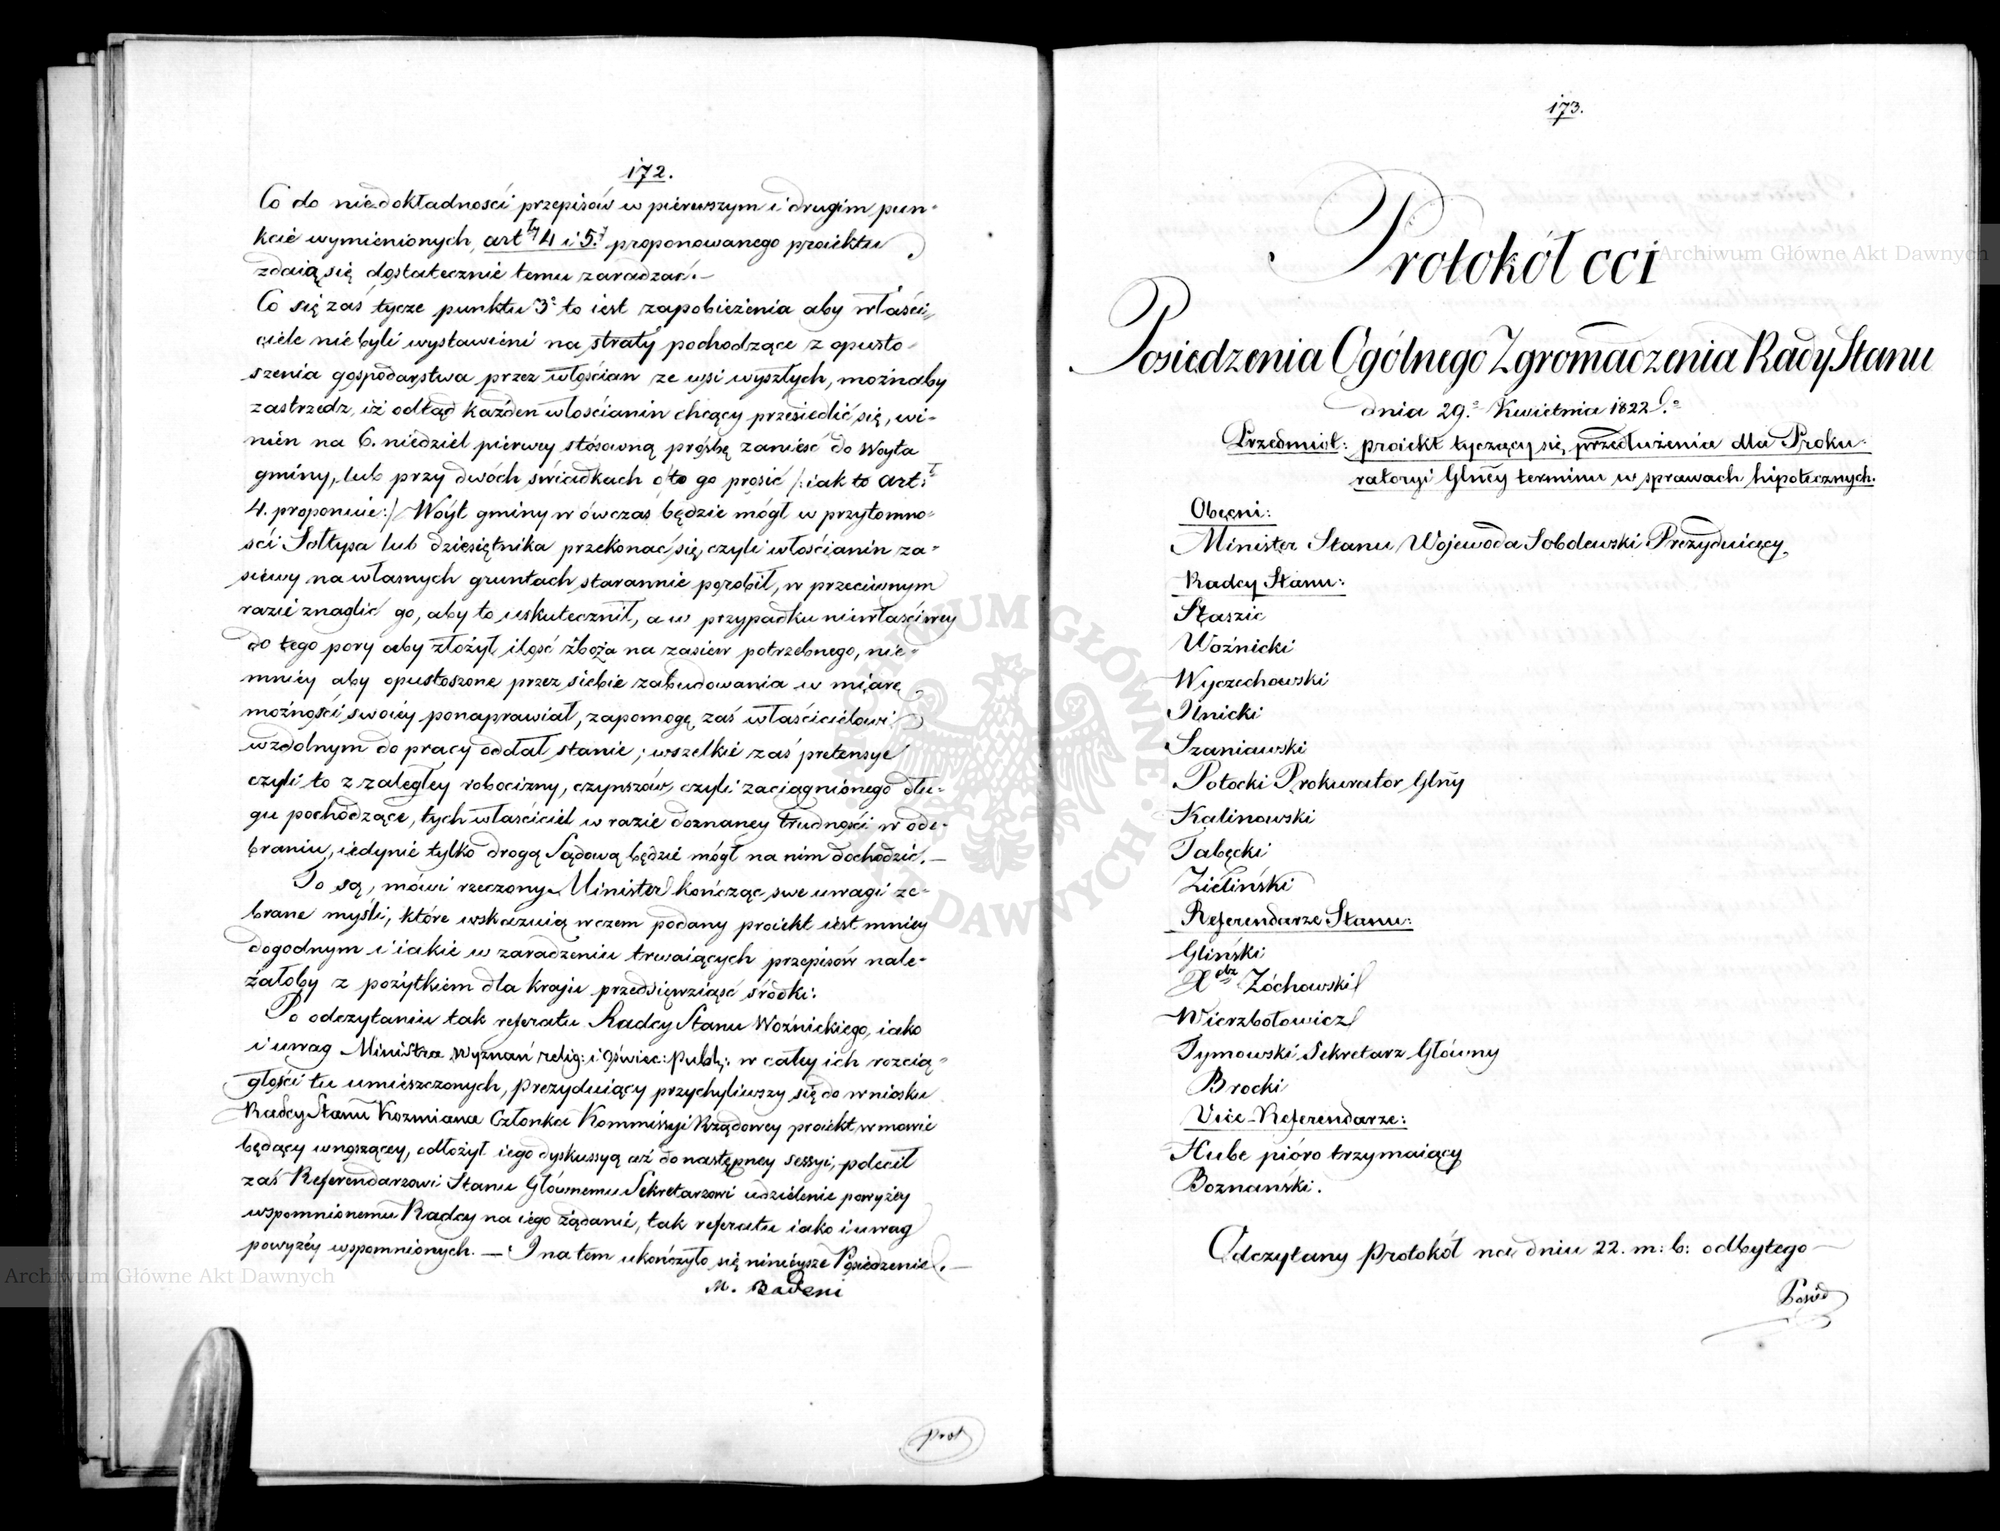 172.
Co do niedokładności przepisów w pierwszym i drugim pun-
kcie wymienionych, art<sup>ły</sup> 4 i 5.<sup>y</sup> proponowanego proiektu
zdaią się dostatecznie temu zaradzać.—
Co się zaś tycze punktu 3° to iest zapobieżenia aby właści-
ciele nie byli wystawieni na straty pochodzące z opusto-
szenia gospodarstwa przez włościan ze wsi wyszłych, możnaby
zastrzedz, iż odtąd każden włościanin chcący przesiedlić się, wi-
nien na 6. niedziel pierwey stósowną prośbę zanieść do Woyta
gminy, lub przy dwóch świadkach o to go prosić /: iak to art:<sup>ł</sup>
4. proponuie:/ Wóyt gminy wówczas będzie mógł w przytomno-
ści Sołtysa lub dziesiętnika przekonać się, czyli włościanin za-
siewy na własnych gruntach starannie porobił, w przeciwnym
razie znaglić go, aby to uskutecznił, a w przypadku niewłaściwey
do tego pory aby złożył ilość zboża na zasiew potrzebnego, nie-
mniey aby opustoszone przez siebie zabudowania w miarę
możności swoiéy ponaprawiał, zapomogę zaś właścicielowi
w zdolnym do pracy oddał stanie; wszelkie zaś pretensye
czyli to z zaległey robocizny, czynszów, czyli zaciągnionego dłu-
gu pochodzące, tych właściciel w razie doznaney trudności w ode-
braniu, iedynie tylko drogą Sądową będzie mógł na nim dochodzić.—
To są, mówi rzeczony Minister kończąc swe uwagi ze-
brane myśli, które wskazuią w czem podany proiekt iest mniey
dogodnym i iakie w zaradzeniu trwaiących przepisów nale-
żałoby z pożytkiem dla kraiu przedsięwziąść środki:
Po odczytaniu tak referatu Radcy Stanu Woźnickiego, iako
i uwag Ministra Wyznań relig: i Oświec: publ: w całey ich rozcią-
głości tu umieszczonych, prezyduiący przychyliwszy się do wniosku
Radcy Stanu Kozmiana Członka Kommissyi Rządowey proiekt w mowie
będący wnoszącey, odłożył iego dyskussyą aż do następney sessyi, polecił
zaś Referendarzowi Stanu Głównemu Sekretarzowi udzielenie powyżéy
wspomnionemu Radcy na iego żądanie, tak referatu iako i uwag
powyżéy wspomnionych. — I na tem ukończyło się ninieysze Posiedzenie.—
M. Badeni
Prot
173.
Protokół CCI
Posiedzenia Ogólnego Zgromadzenia Rady Stanu
dnia 29.° Kwietnia 1822.°
Przedmiot: proiekt tyczący się przedłużenia dla Proku-
ratoryi Glnéy terminu w sprawach hipotecznych.
Obecni:
Minister Stanu Wojewoda Sobolewski Prezyduiący
Radcy Stanu:
Staszic
Woźnicki
Wyczechowski
Ilnicki
Szaniawski
Potocki Prokurator Glny
Kalinowski
Tabęcki
Zieliński
Referendarze Stanu:
Gliński
X<sup>dz</sup> Żóchowski
Wierzbołowicz
Tymowski Sekretarz Główny
Brocki
Vice-Referendarze:
Hube pióro trzymaiący
Boznański.
Odczytany protokół na dniu 22. m: b: odbytego
Posied
Archiwum Główne Akt Dawnych
Archiwum Główne Akt Dawnych
ARCHIWUM GŁÓWNE AKT DAWNYCH